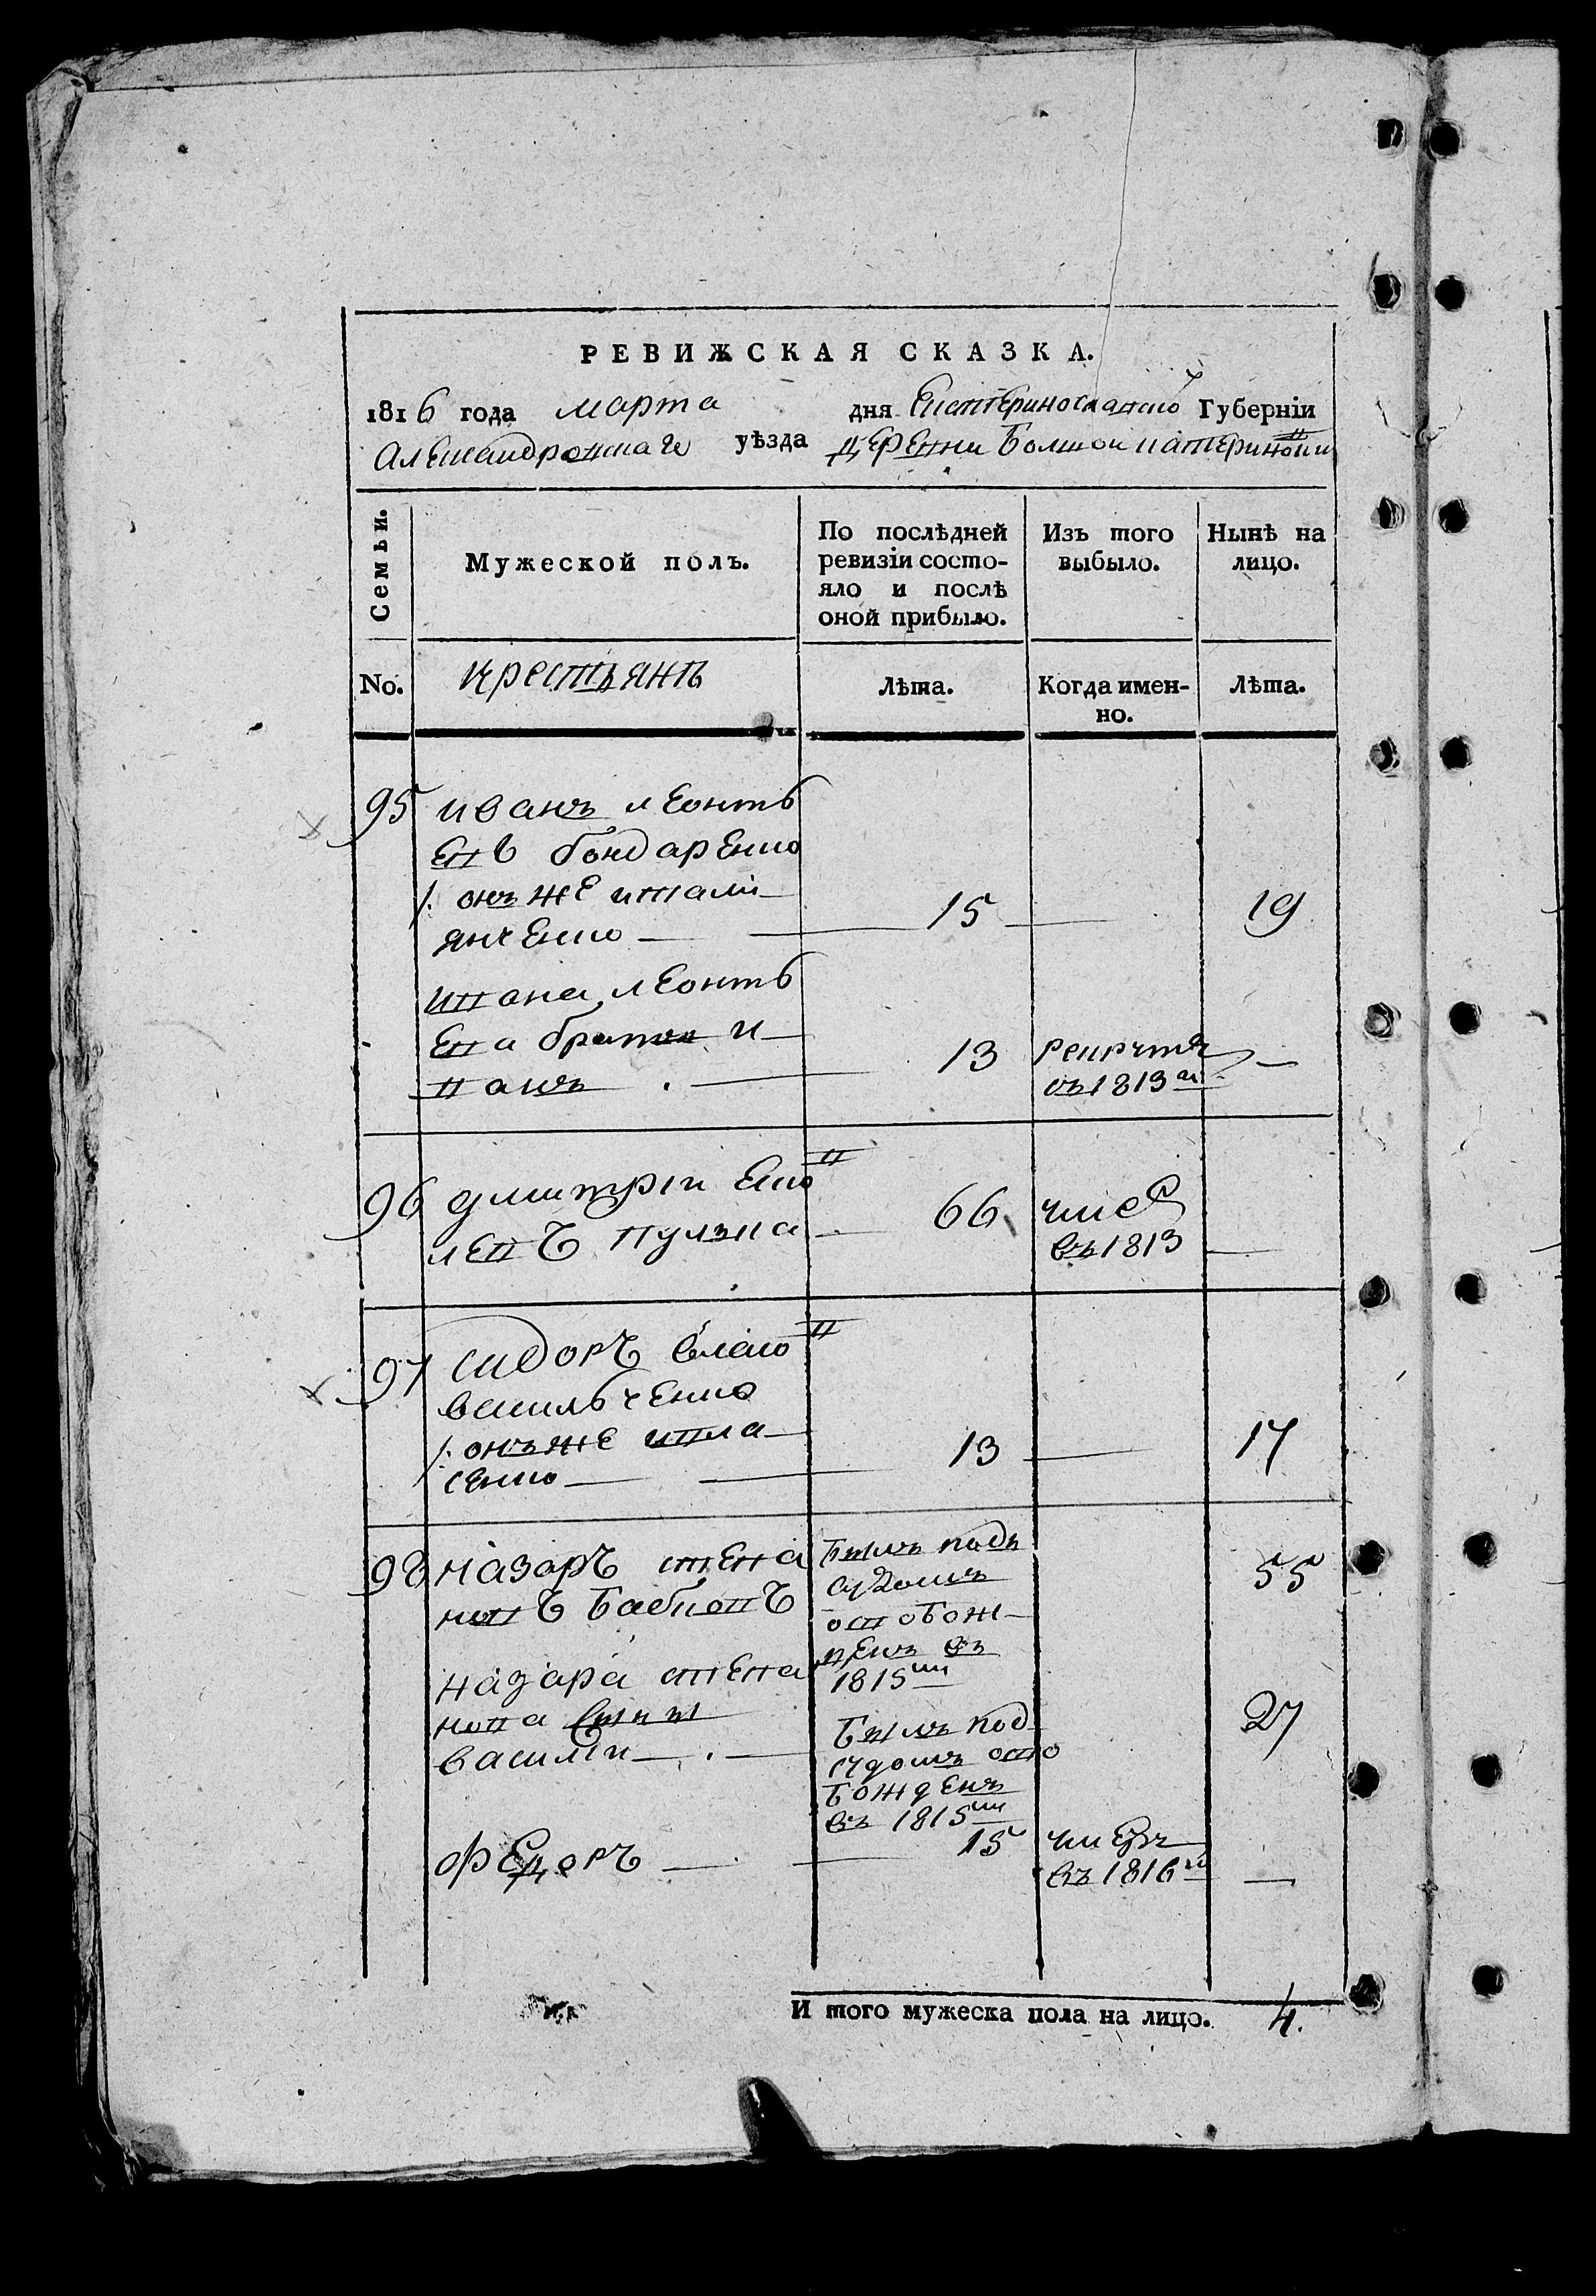 РЕВИЖСКАЯ СКАЗКА.
1816 года марта дня Екатеринославской Губерніи
Александровскаго уѣзда деревни Болшой катериновки
Семьи.
Мужеской полъ.
По послѣдней ревизіи состояло и послѣ оной прибыло.
Изъ того выбыло.
Нынѣ на лицо.
No.
крестьянъ
Лѣта.
Когда именно.
Лѣта.
95 иванъ леонть
евъ бондаренко
/: онъ же
янченко — 15 — 19
ивана леонть
ева братъ и 13 рекрутъ —
ванъ въ 1813м
96 дмитріи яко 66 умеръ
левъ пулька въ 1813 —
97 сидоръ влаso
василь ченко
/: онъ же вла 13 — 17
сенко
98 назаръ степа былъ подъ 55
новъ бабковъ судомъ
освобож
денъ въ
назара степа 1815м
нова сынъ былъ под 27
василіи — . — судомъ осво
божденъ
въ 1815м
федоръ — 15 умеръ
въ 1816м —
И того мужеска пола на лицо. 4.